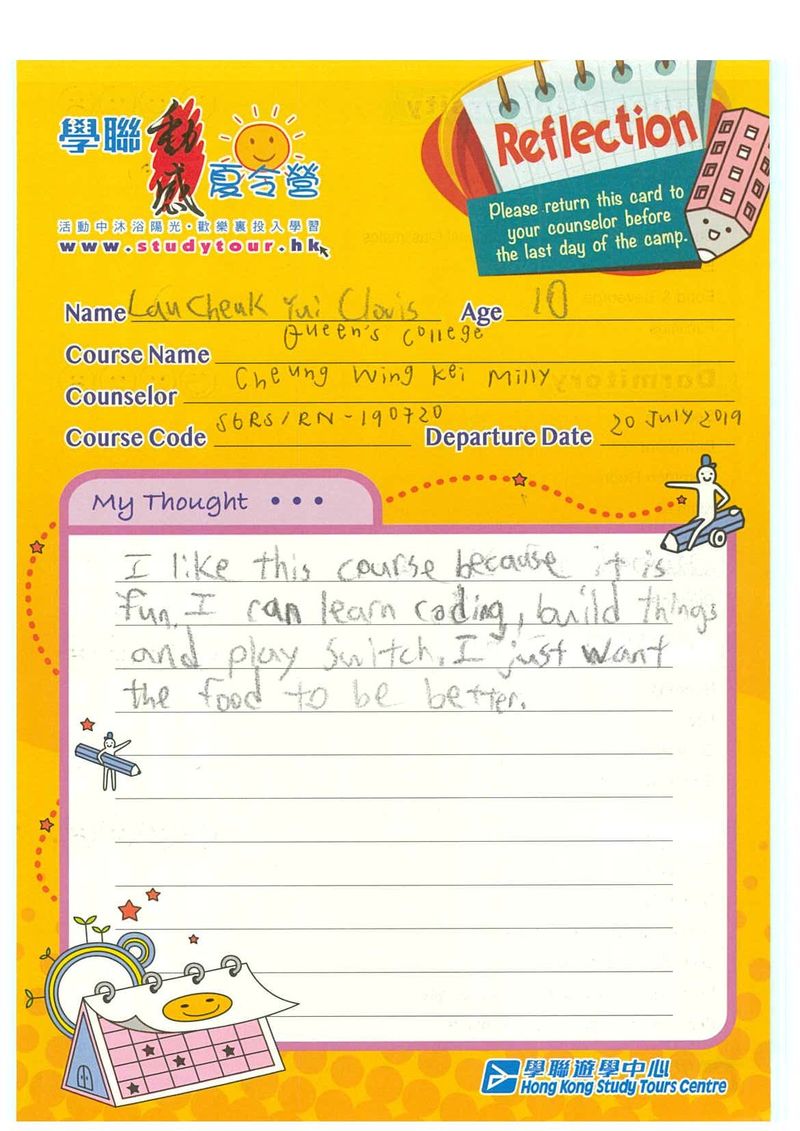 學聯 動感 夏令營
活動中沐浴陽光·歡樂裏投入學習
www.studytour.hk
Reflection
Please return this card to
your counselor before
the last day of the camp.
Name Lau Cheuk Yui Clovis Age 10
Course Name Queen's College
Counselor Cheung Wing Kei Milly
Course Code S6RS/RN-190720 Departure Date 20 July 2019
My Thought •••
I like this course because it is
fun. I can learn coding, build things
and play Switch. I just want
the food to be better.
學聯遊學中心
Hong Kong Study Tours Centre